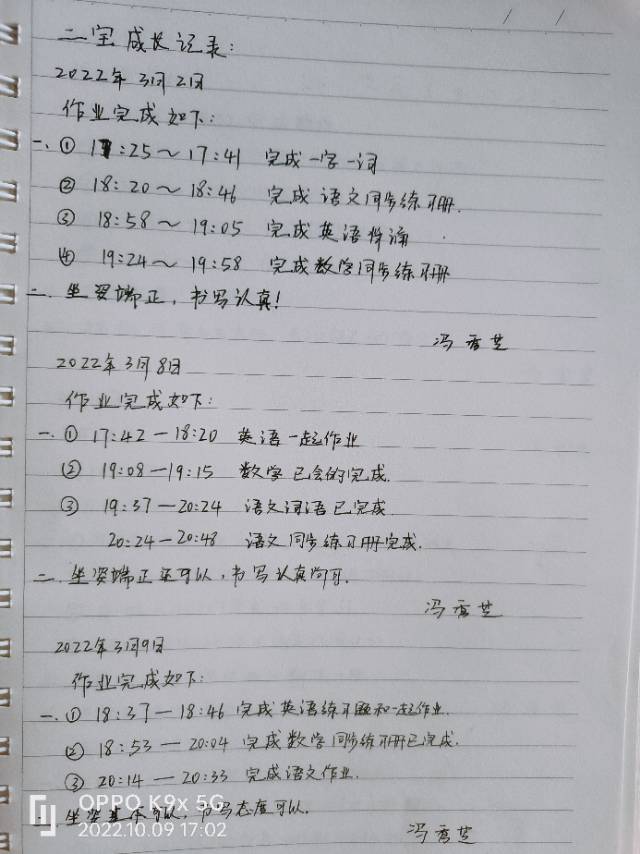 二宝成长记录:
2022年3月2日
作业完成如下:
一、① 17:25~17:41 完成一字一词
② 18:20~18:46 完成语文同步练习册.
③ 18:58~19:05 完成英语背诵
④ 19:24~19:58 完成数学同步练习册
二、坐姿端正,书写认真!
冯香芝
2022年3月8日
作业完成如下:
一.① 17:42—18:20 英语一起作业
② 19:08—19:15 数学已会的完成.
③ 19:37—20:24 语文词语已完成
20:24—20:48 语文同步练习册完成.
二.坐姿端正还可以,书写认真尚可.
冯香芝
2022年3月9日
作业完成如下:
一.① 18:37—18:46 完成英语练习题和一起作业.
② 18:53—20:04 完成数学同步练习册已完成.
③ 20:14—20:33 完成语文作业.
二.坐姿基本可以,书写态度可以.
冯香芝
OPPO K9x 5G
2022.10.09 17:02